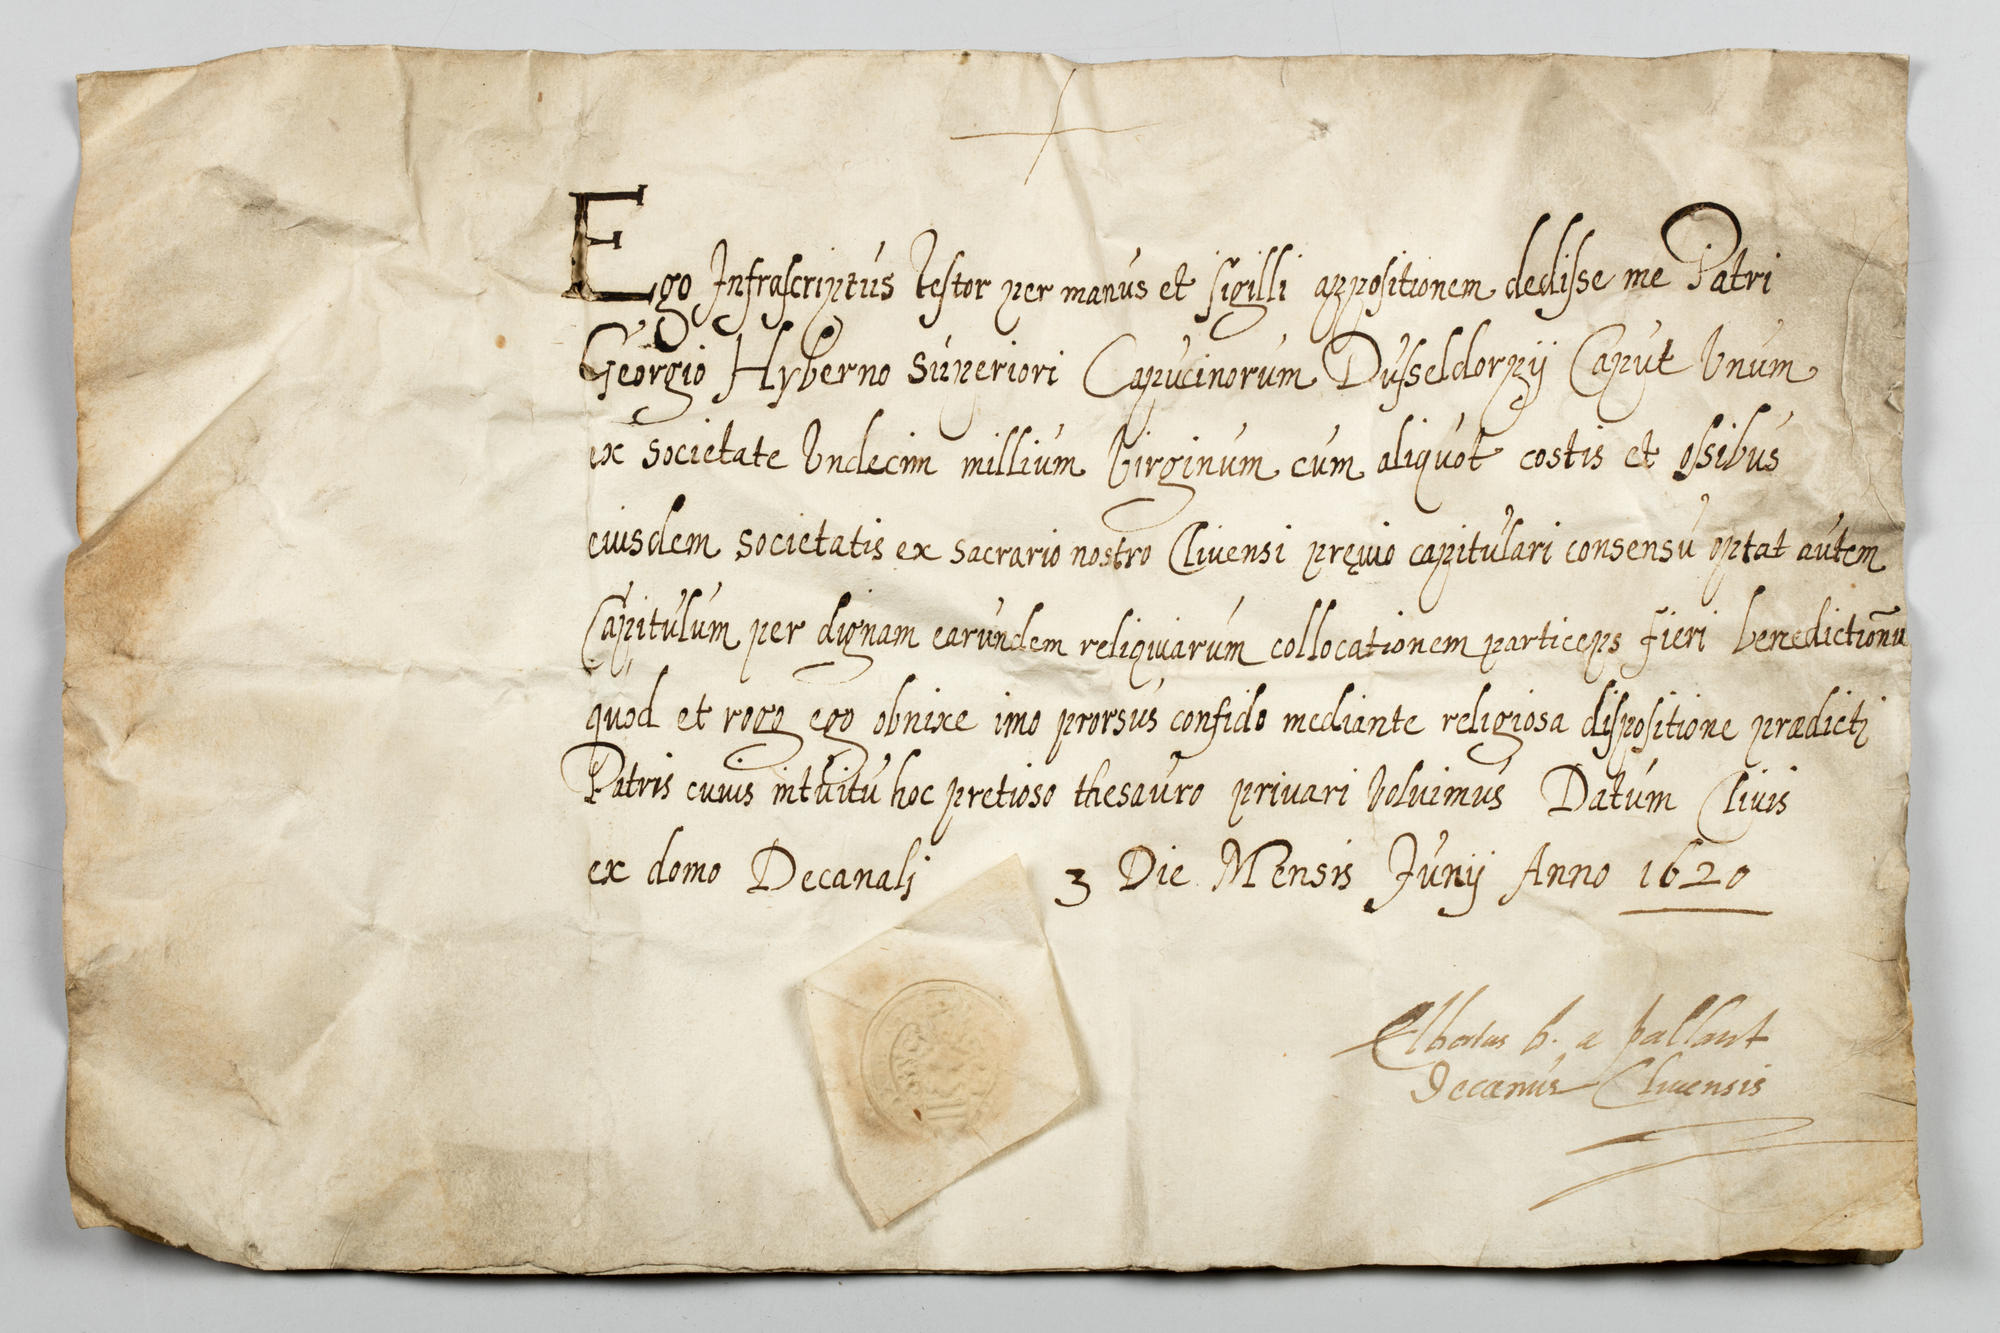 Ego Infrascriptus testor per manus et sigilli appositionem dedisse me Patri
Georgio Hyberno Superiori Capucinorum Dusseldorpij Caput Vnum
ex societate Vndecim millium Virginum cum aliquot costis et ossibus
eiusdem societatis ex sacrario nostro Cliuensi pręuio capitulari consensu optat autem
Capitulum per dignam earundem reliquiarum collocationem particeps fieri benedictionũ
quod et rogo ego obnixe imo prorsus confido mediante religiosa dispositione prædicti
Patris cuius intuitu hoc pretioso thesauro priuari Voluimus Datum Cliuis
ex domo Decanali 3 Die Mensis Junij Anno 1620
Elbertus b. a pallant
Decanus Cliuensis